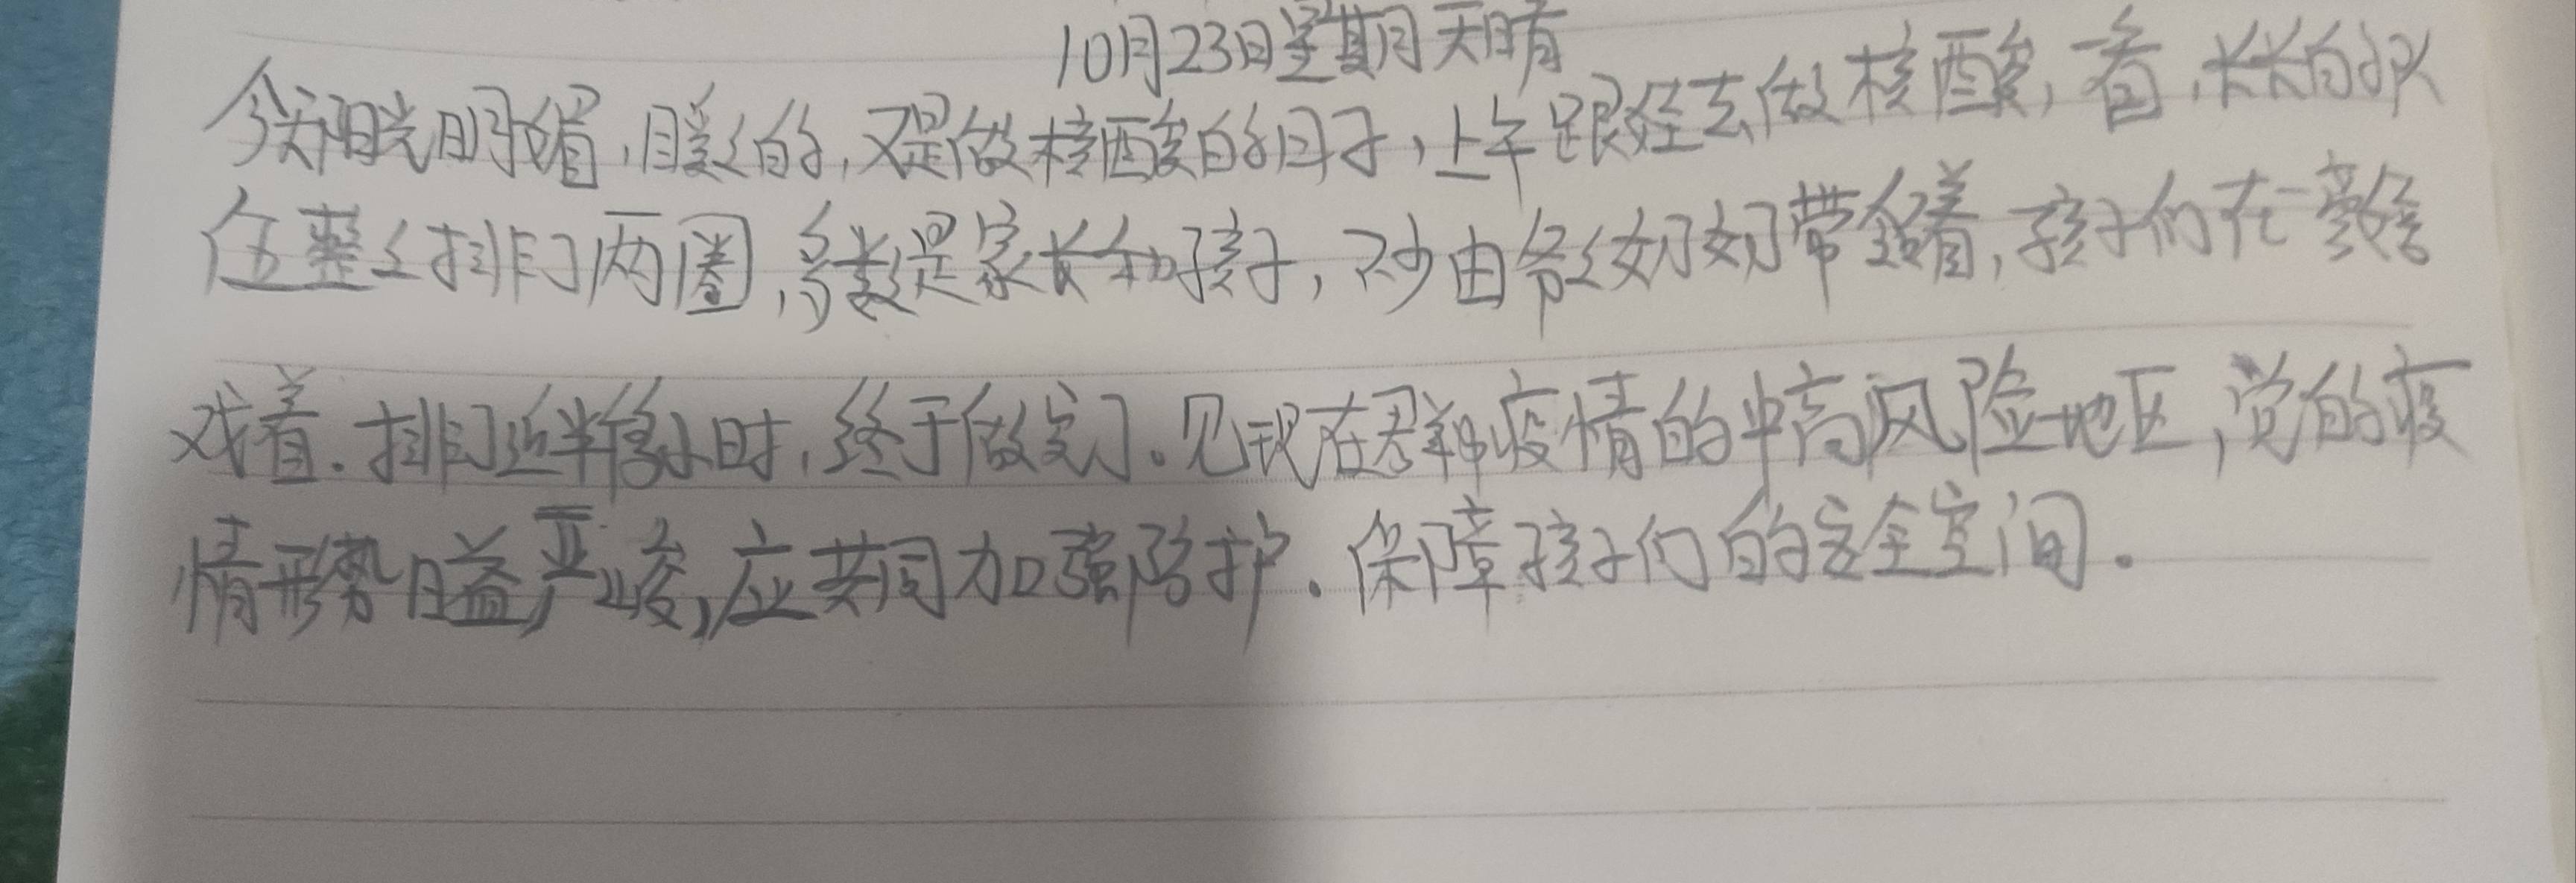 10月23日星期天晴
今天阳光明媚,暖々的,又是做核酸的日子,上午跟侄去做核酸,看,长长的队
伍整々排了两圈,多数是家长和孩子,不少由爷々奶奶带领着,孩子们在一旁嬉
戏着.排了近半個小时,终于做完了。见现在君群疫情的中高风险地区,觉的疫
情形势日益严峻,应共同加强防护.保障孩子们的安全空间.